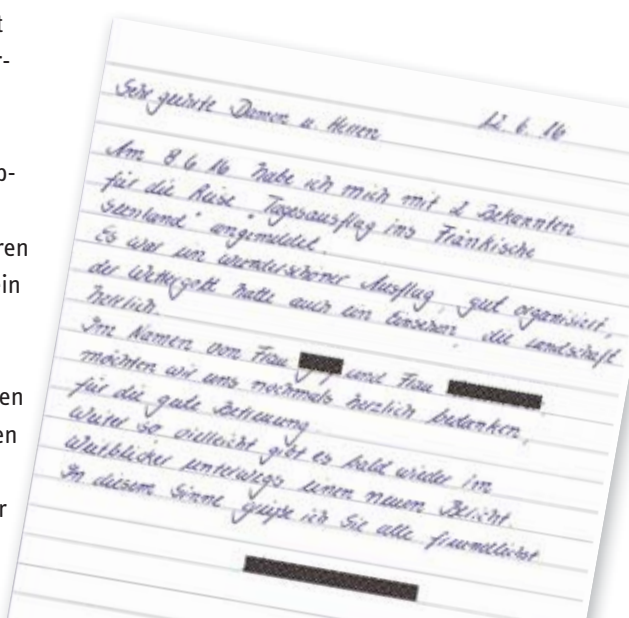 t
r-
b-
ren
in
en
en
r
Sehr geehrte Damen u. Herren 12. 6. 16
Am 8 6 16 habe ich mich mit 2 Bekannten
für die Reise "Tagesausflug ins Fränkische
Seenland" angemeldet.
Es war ein wunderschöner Ausflug, gut organisiert,
der Wettergott hatte auch ein Einsehen, die Landschaft
herrlich.
Im Namen von Frau und Frau
möchten wir uns nochmals herzlich bedanken,
für die gute Betreuung
Weiter so vielleicht gibt es bald wieder im
Weitblicker unterwegs einen neuen Bericht.
In diesem Sinne grüße ich Sie alle freundlichst